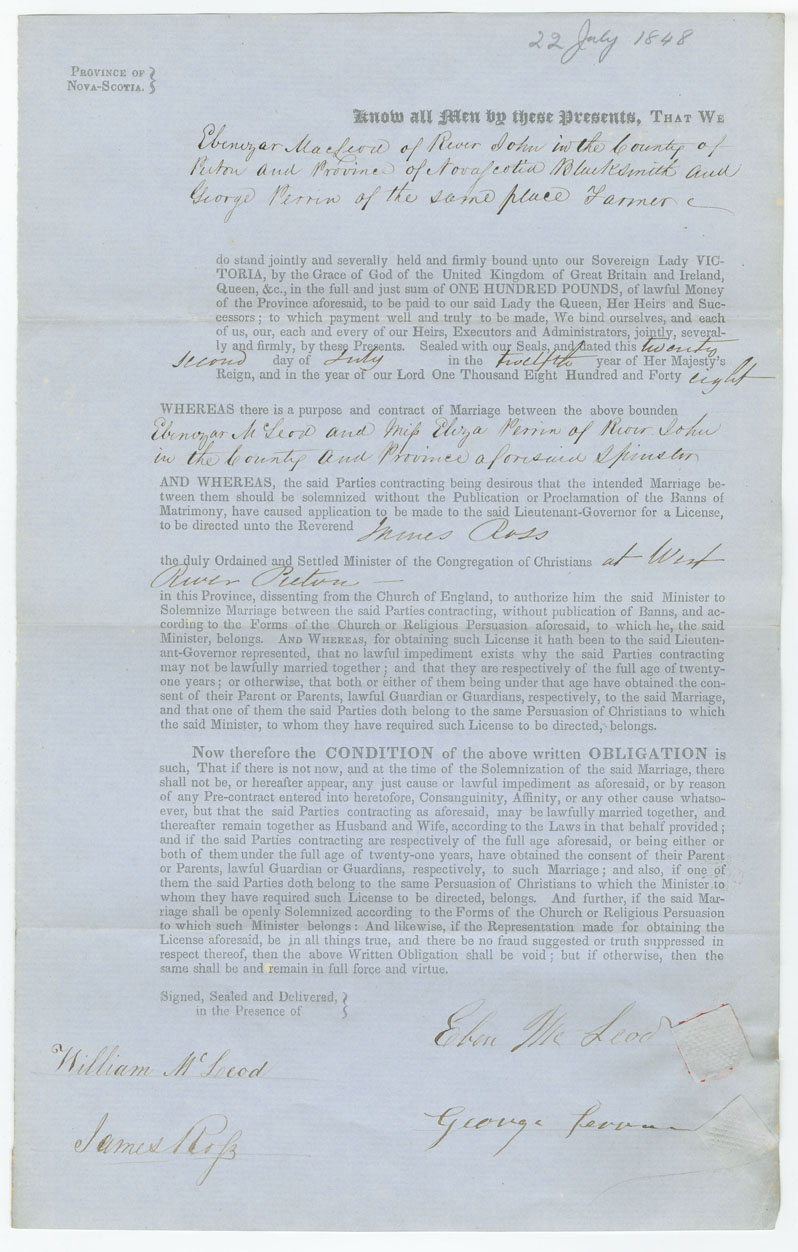 22 July 1848
PROVINCE OF
NOVA-SCOTIA.
Know all Men by these Presents, THAT WE
Ebenezar MacLeod of River John in the County of
Pictou and Province of Novascotia Blacksmith and
George Perrin of the same place Farmer
do stand jointly and severally held and firmly bound unto our Sovereign Lady VIC-
TORIA, by the Grace of God of the United Kingdom of Great Britain and Ireland,
Queen, &c., in the full and just sum of ONE HUNDRED POUNDS, of lawful Money
of the Province aforesaid, to be paid to our said Lady the Queen, Her Heirs and Suc-
cessors; to which payment well and truly to be made, We bind ourselves, and each
of us, our, each and every of our Heirs, Executors and Administrators, jointly, several-
ly and firmly, by these Presents. Sealed with our Seals, and dated this twenty
second day of July in the twelfth year of Her Majesty's
Reign, and in the year of our Lord One Thousand Eight Hundred and Forty eight
WHEREAS there is a purpose and contract of Marriage between the above bounden
Ebenezar McLeod and Miss Eliza Perrin of River John
in the County and Province aforesaid Spinster
AND WHEREAS, the said Parties contracting being desirous that the intended Marriage be-
tween them should be solemnized without the Publication or Proclamation of the Banns of
Matrimony, have caused application to be made to the said Lieutenant-Governor for a License,
to be directed unto the Reverend James Ross
the duly Ordained and Settled Minister of the Congregation of Christians at West
River Pictou
in this Province, dissenting from the Church of England, to authorize him the said Minister to
Solemnize Marriage between the said Parties contracting, without publication of Banns, and ac-
cording to the Forms of the Church or Religious Persuasion aforesaid, to which he, the said
Minister, belongs. AND WHEREAS, for obtaining such License it hath been to the said Lieuten-
ant-Governor represented, that no lawful impediment exists why the said Parties contracting
may not be lawfully married together; and that they are respectively of the full age of twenty-
one years; or otherwise, that both or either of them being under that age have obtained the con-
sent of their Parent or Parents, lawful Guardian or Guardians, respectively, to the said Marriage,
and that one of them the said Parties doth belong to the same Persuasion of Christians to which
the said Minister, to whom they have required such License to be directed, belongs.
Now therefore the CONDITION of the above written OBLIGATION is
such, That if there is not now, and at the time of the Solemnization of the said Marriage, there
shall not be, or hereafter appear, any just cause or lawful impediment as aforesaid, or by reason
of any Pre-contract entered into heretofore, Consanguinity, Affinity, or any other cause whatso-
ever, but that the said Parties contracting as aforesaid, may be lawfully married together, and
thereafter remain together as Husband and Wife, according to the Laws in that behalf provided;
and if the said Parties contracting are respectively of the full age aforesaid, or being either or
both of them under the full age of twenty-one years, have obtained the consent of their Parent
or Parents, lawful Guardian or Guardians, respectively, to such Marriage; and also, if one of
them the said Parties doth belong to the same Persuasion of Christians to which the Minister to
whom they have required such License to be directed, belongs. And further, if the said Mar-
riage shall be openly Solemnized according to the Forms of the Church or Religious Persuasion
to which such Minister belongs: And likewise, if the Representation made for obtaining the
License aforesaid, be in all things true, and there be no fraud suggested or truth suppressed in
respect thereof, then the above Written Obligation shall be void; but if otherwise, then the
same shall be and remain in full force and virtue.
Signed, Sealed and Delivered,
in the Presence of
Eben McLeod
William McLeod
George Perrin
James Ross